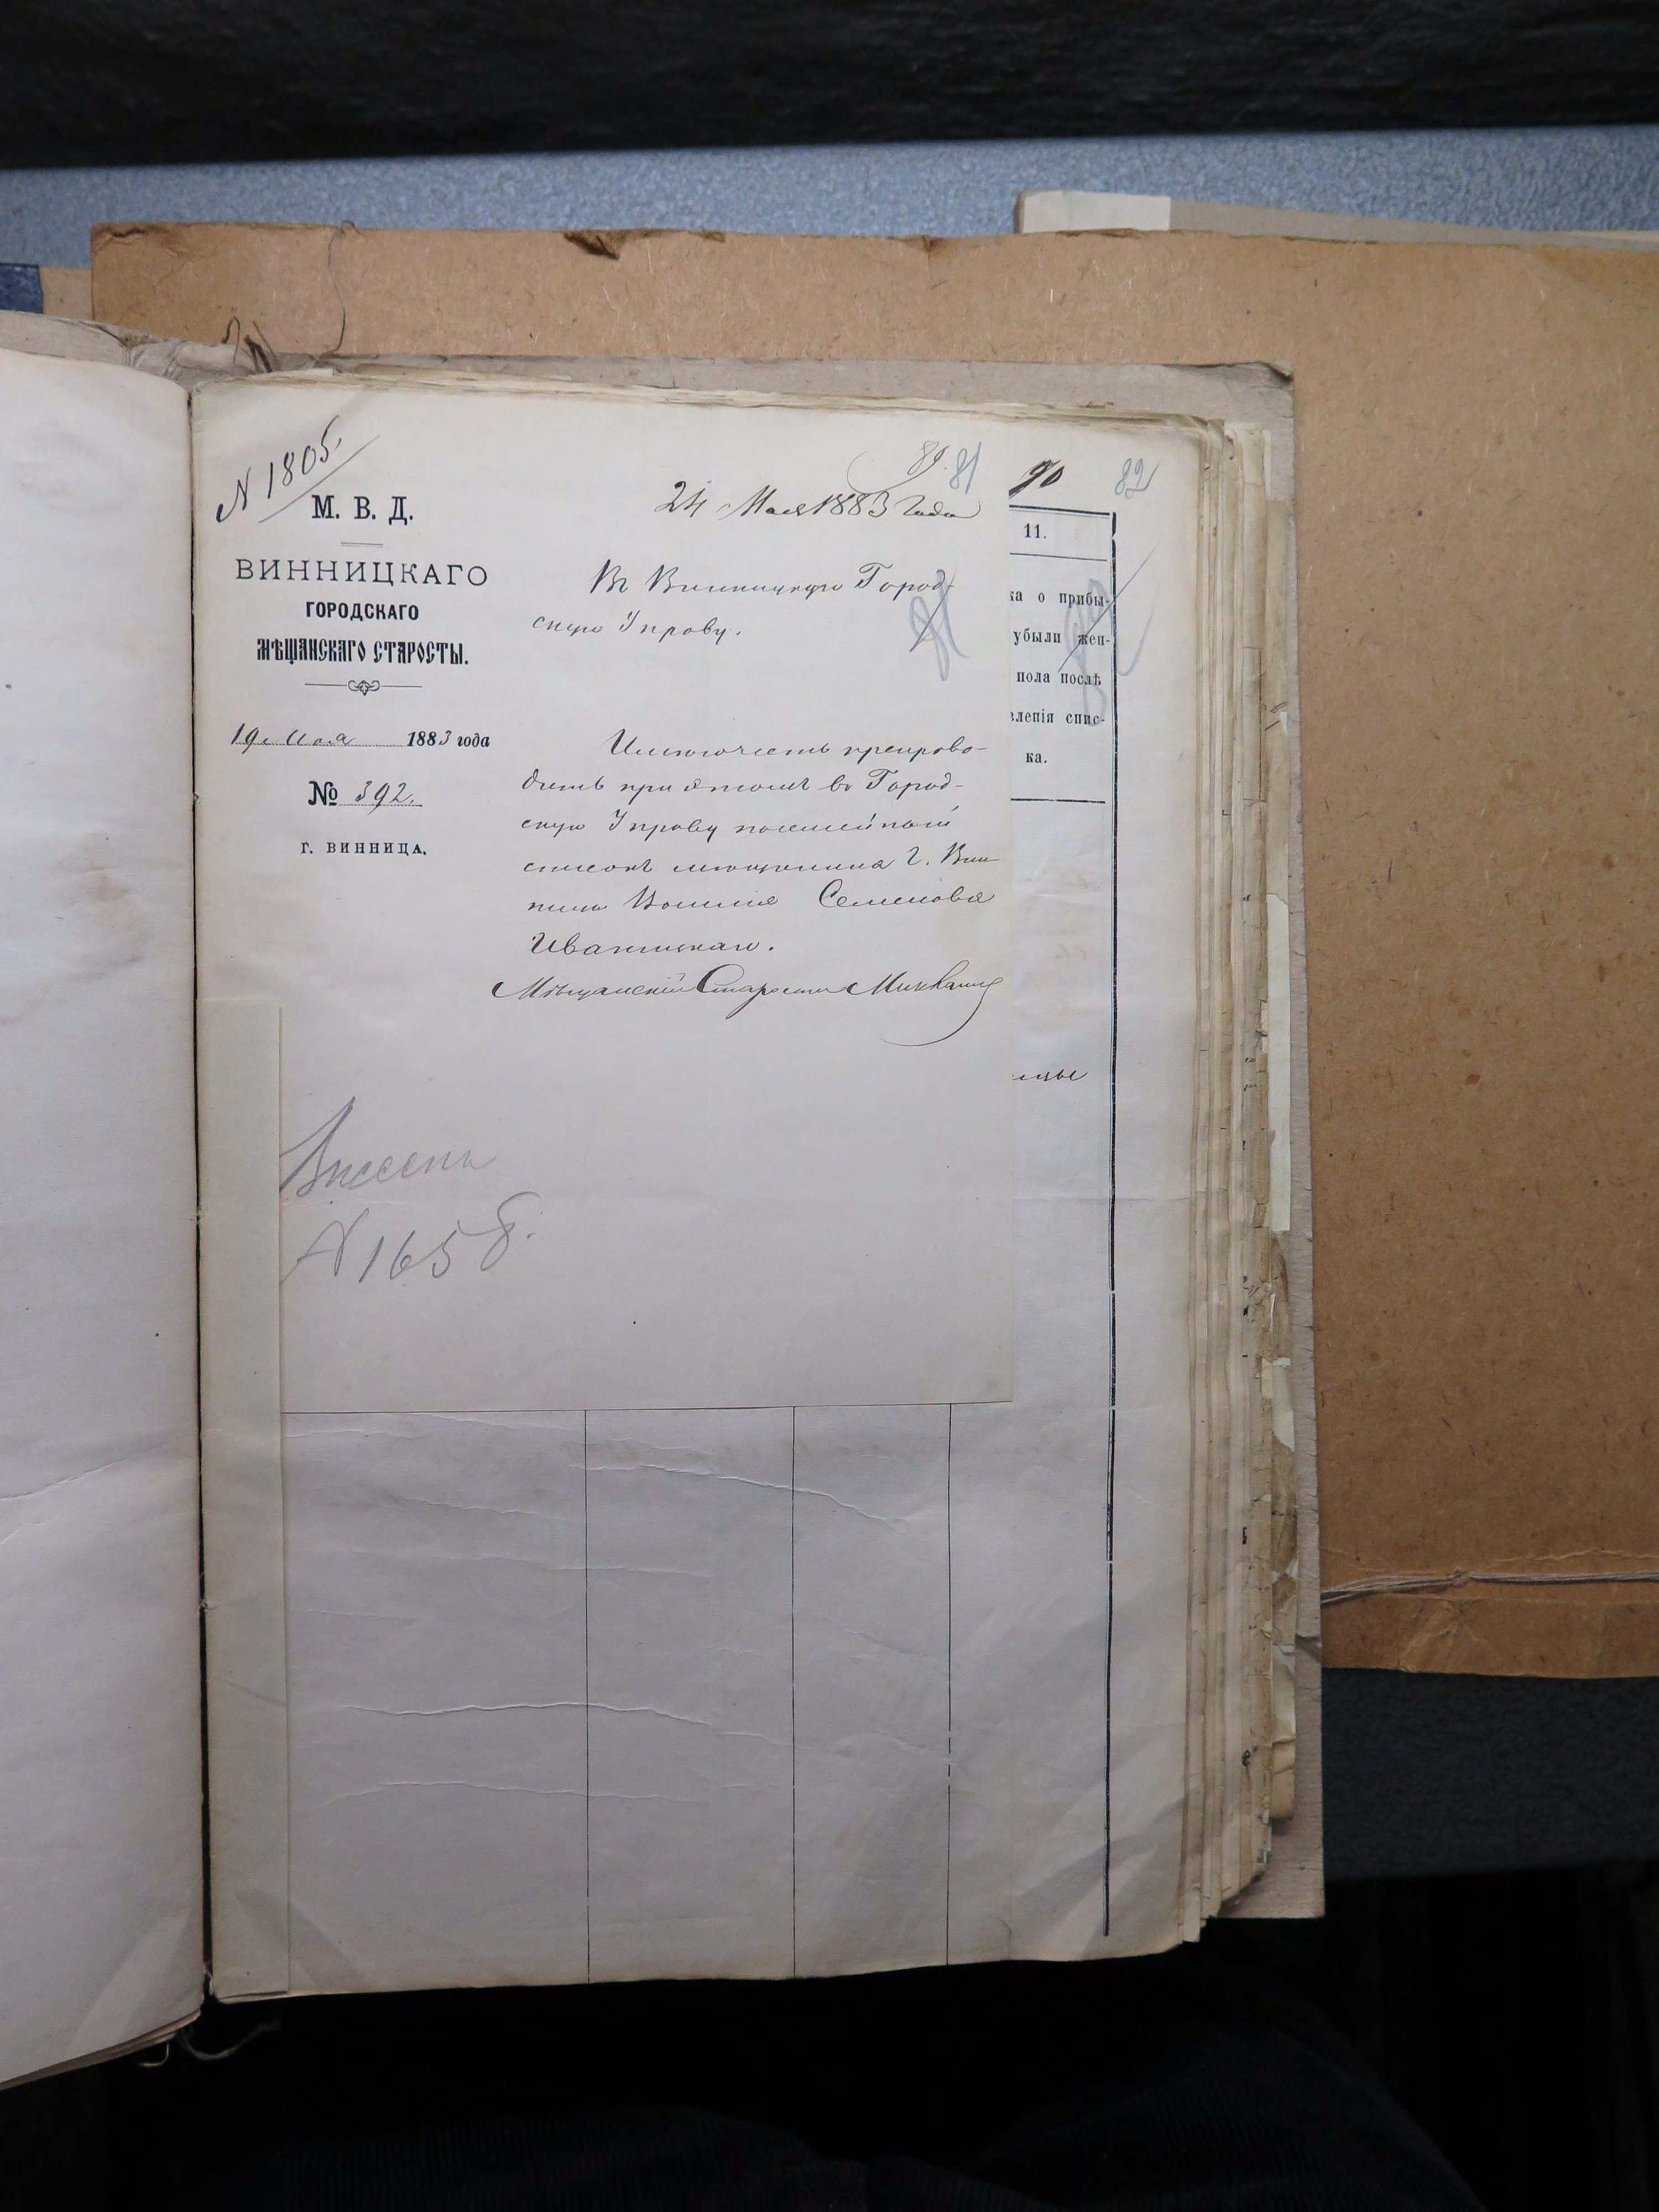 N 1805.
М. В. Д.
ВИННИЦКАГО
ГОРОДСКАГО
МѢЩАНСКАГО СТАРОСТЫ.
19 Мая 1883 года
№ 392.
г. ВИННИЦА.
81
24 Мая 1883 года
Въ Винницкую Город-
скую Управу.
Имѣю честь препрово-
дить при этомъ въ Город-
скую Управу посемейный
списокъ мѣщанина г. Вин-
ницы Василия Семенова
Мѣщанскій Староста
N 1658.
90 82
11.
ка о прибы-
убыли жен-
пола послѣ
вленія спис-
ка.